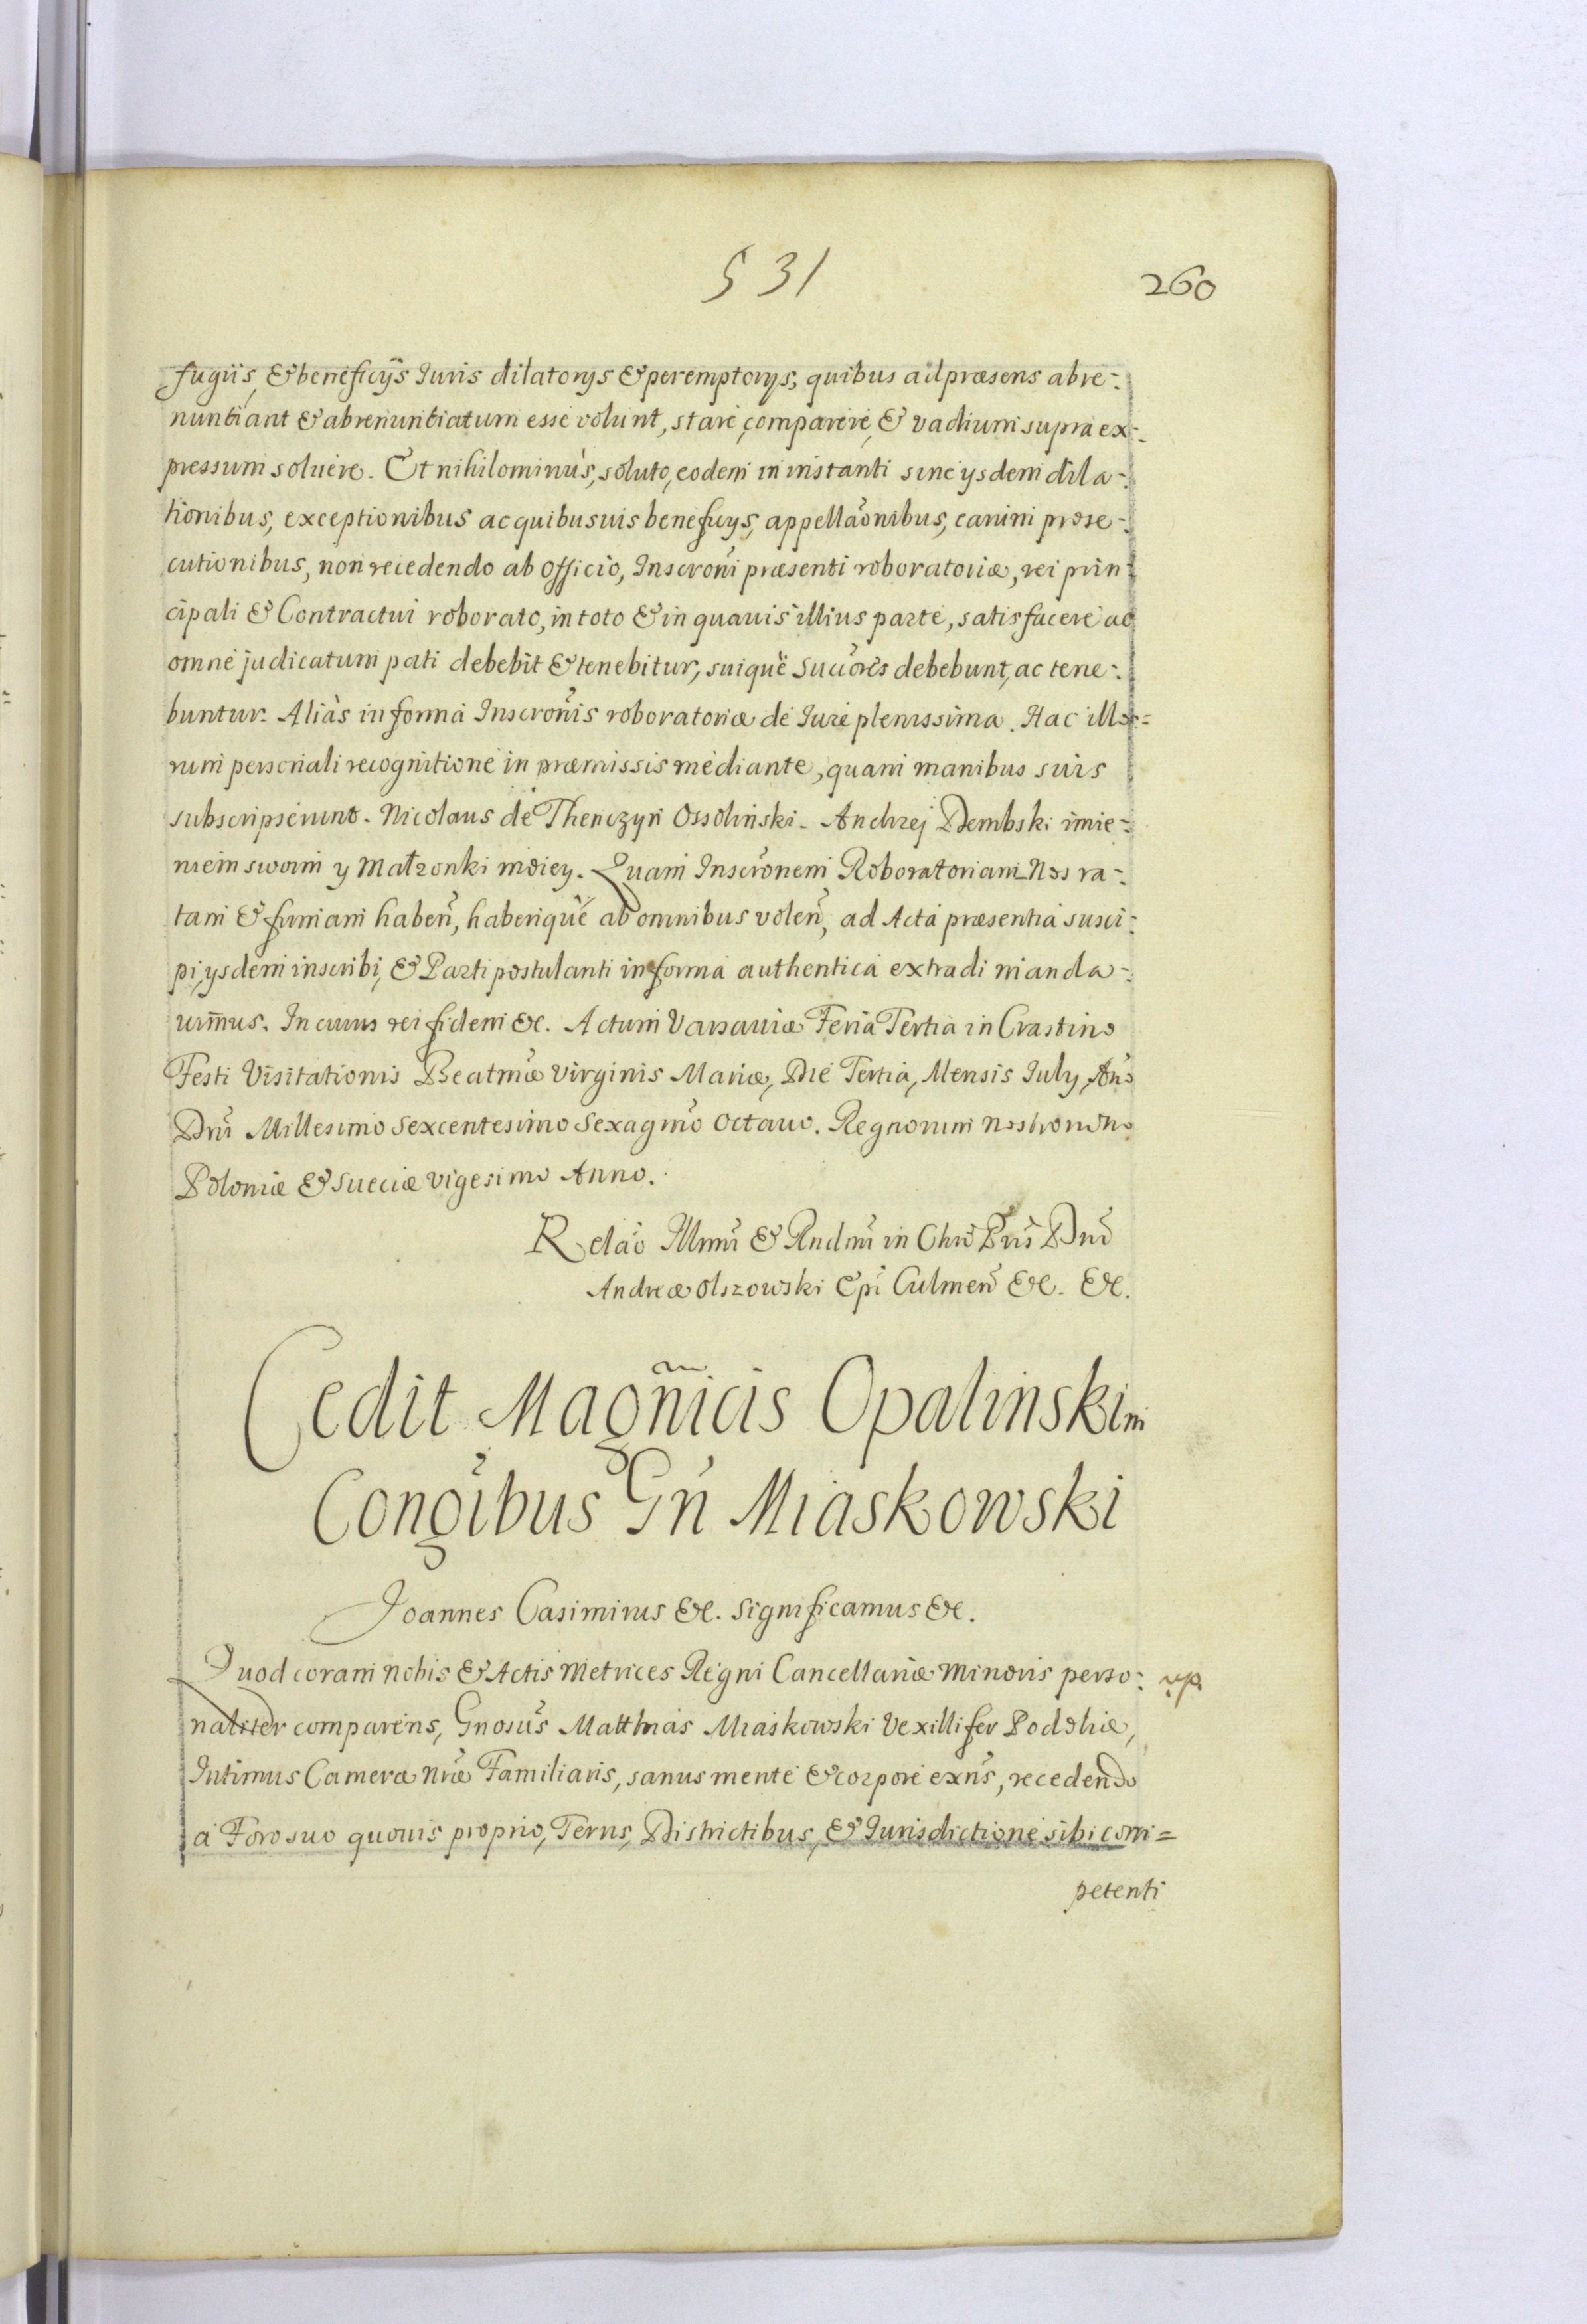 531
260
fugiis, & beneficÿs Iuris dilatorÿs & peremptorÿs, quibus ad præsens abre-
nuntiant & abrenuntiatum esse volunt, stare, comparere, & vadium supra ex-
pressum soluere. Et nihilominus, soluto, eodem in instanti sine ÿsdem dila-
tionibus, exceptionibus ac quibusuis beneficÿs, appellãonibus, earum prose-
cutionibus, non recedendo ab officio, Inscrõni præsenti roboratoriæ, rei prin-
cipali & Contractui roborato, in toto & in quauis illius parte, satisfacere ac
omne judicatum pati debebit & tenebitur, suique Succõres debebunt, ac tene-
buntur. Alias in forma Inscrõnis roboratoriæ de Iure plenissima. Hac illor=
rum personali recognitione in præmissis mediante, quam manibus suis
subscripserunt. Nicolaus de Thenczyn Ossolinski. Andrzej Dembski imie-
niem swoim y Małzonki moiey. Quam Inscrõnem Roboratoriam Nos ra-
tam & firmam habeñ, haberique ab omnibus voleñ, ad Acta præsentia susci-
pi, ÿsdem inscribi, & Parti postulanti in forma authentica extradi manda-
uim̃us. In cuius rei fidem &c. Actum Varsauiæ Feria Tertia in Crastino
Festi Visitationis Beatm̃æ Virginis Mariæ, Die Tertia, Mensis July, Añõ
Dnĩ Millesimo Sexcentesimo Sexagm̃o Octauo. Regnorum Nostrorum
Poloniæ & Sueciæ vigesimo Anno.
Relaõ Illmĩ & Rndmĩ in Chrõ Prĩs Dnĩ
Andreæ Olszowski Epĩ Culmeñ &c. &c.
Cedit Magñicis Opalinskim
Congĩbus Gñ Miaskowski
Joannes Casimirus &c. Significamus &c.
Quod coram nobis & Actis Metrices Regni Cancellariæ Minoris perso-
naliter comparens, Gnosũs Matthias Miaskowski Vexillifer Podoliæ,
Intimus Cameræ Nr̃æ Familiaris, sanus mente & corpore exñs, recedendo
a Foro suo quouis proprio, Terris, Districtibus, & Iurisdictione sibi com=
petenti